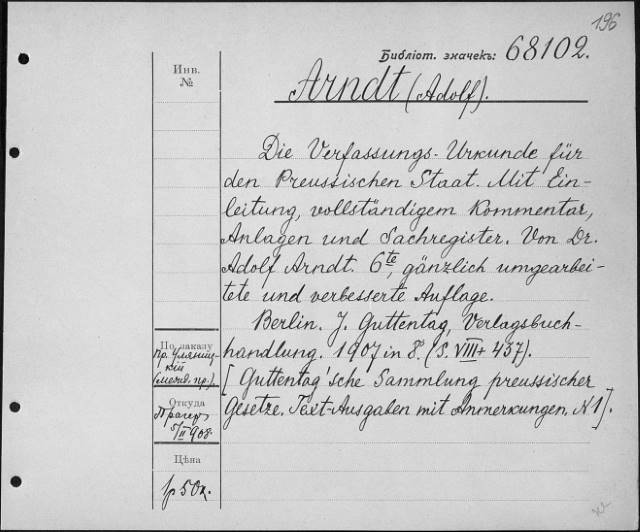 196
Библіот. значекъ: 68102.
Инв.
№
Arndt (Adolf).
Die Verfassungs-Urkunde für
den Preussischen Staat. Mit Ein-
leitung, vollständigem Kommentar,
Anlagen und Sachregister. Von Dr.
Adolf Arndt. 6te, gänzlich umgearbei-
tete und verbesserte Auflage.
Berlin. J. Guttentag, Verlagsbuch-
handlung. 1907 in 8°. (S. VIII + 437).
[Guttentag'sche Sammlung preussischer
Gesetze. Text-Ausgaben mit Anmerkungen, N 1].
По заказу
пр. Уляниц-
кій
(межд. пр.)
Откуда
Прагеръ
5/II 908
Цѣна
1р 50к.